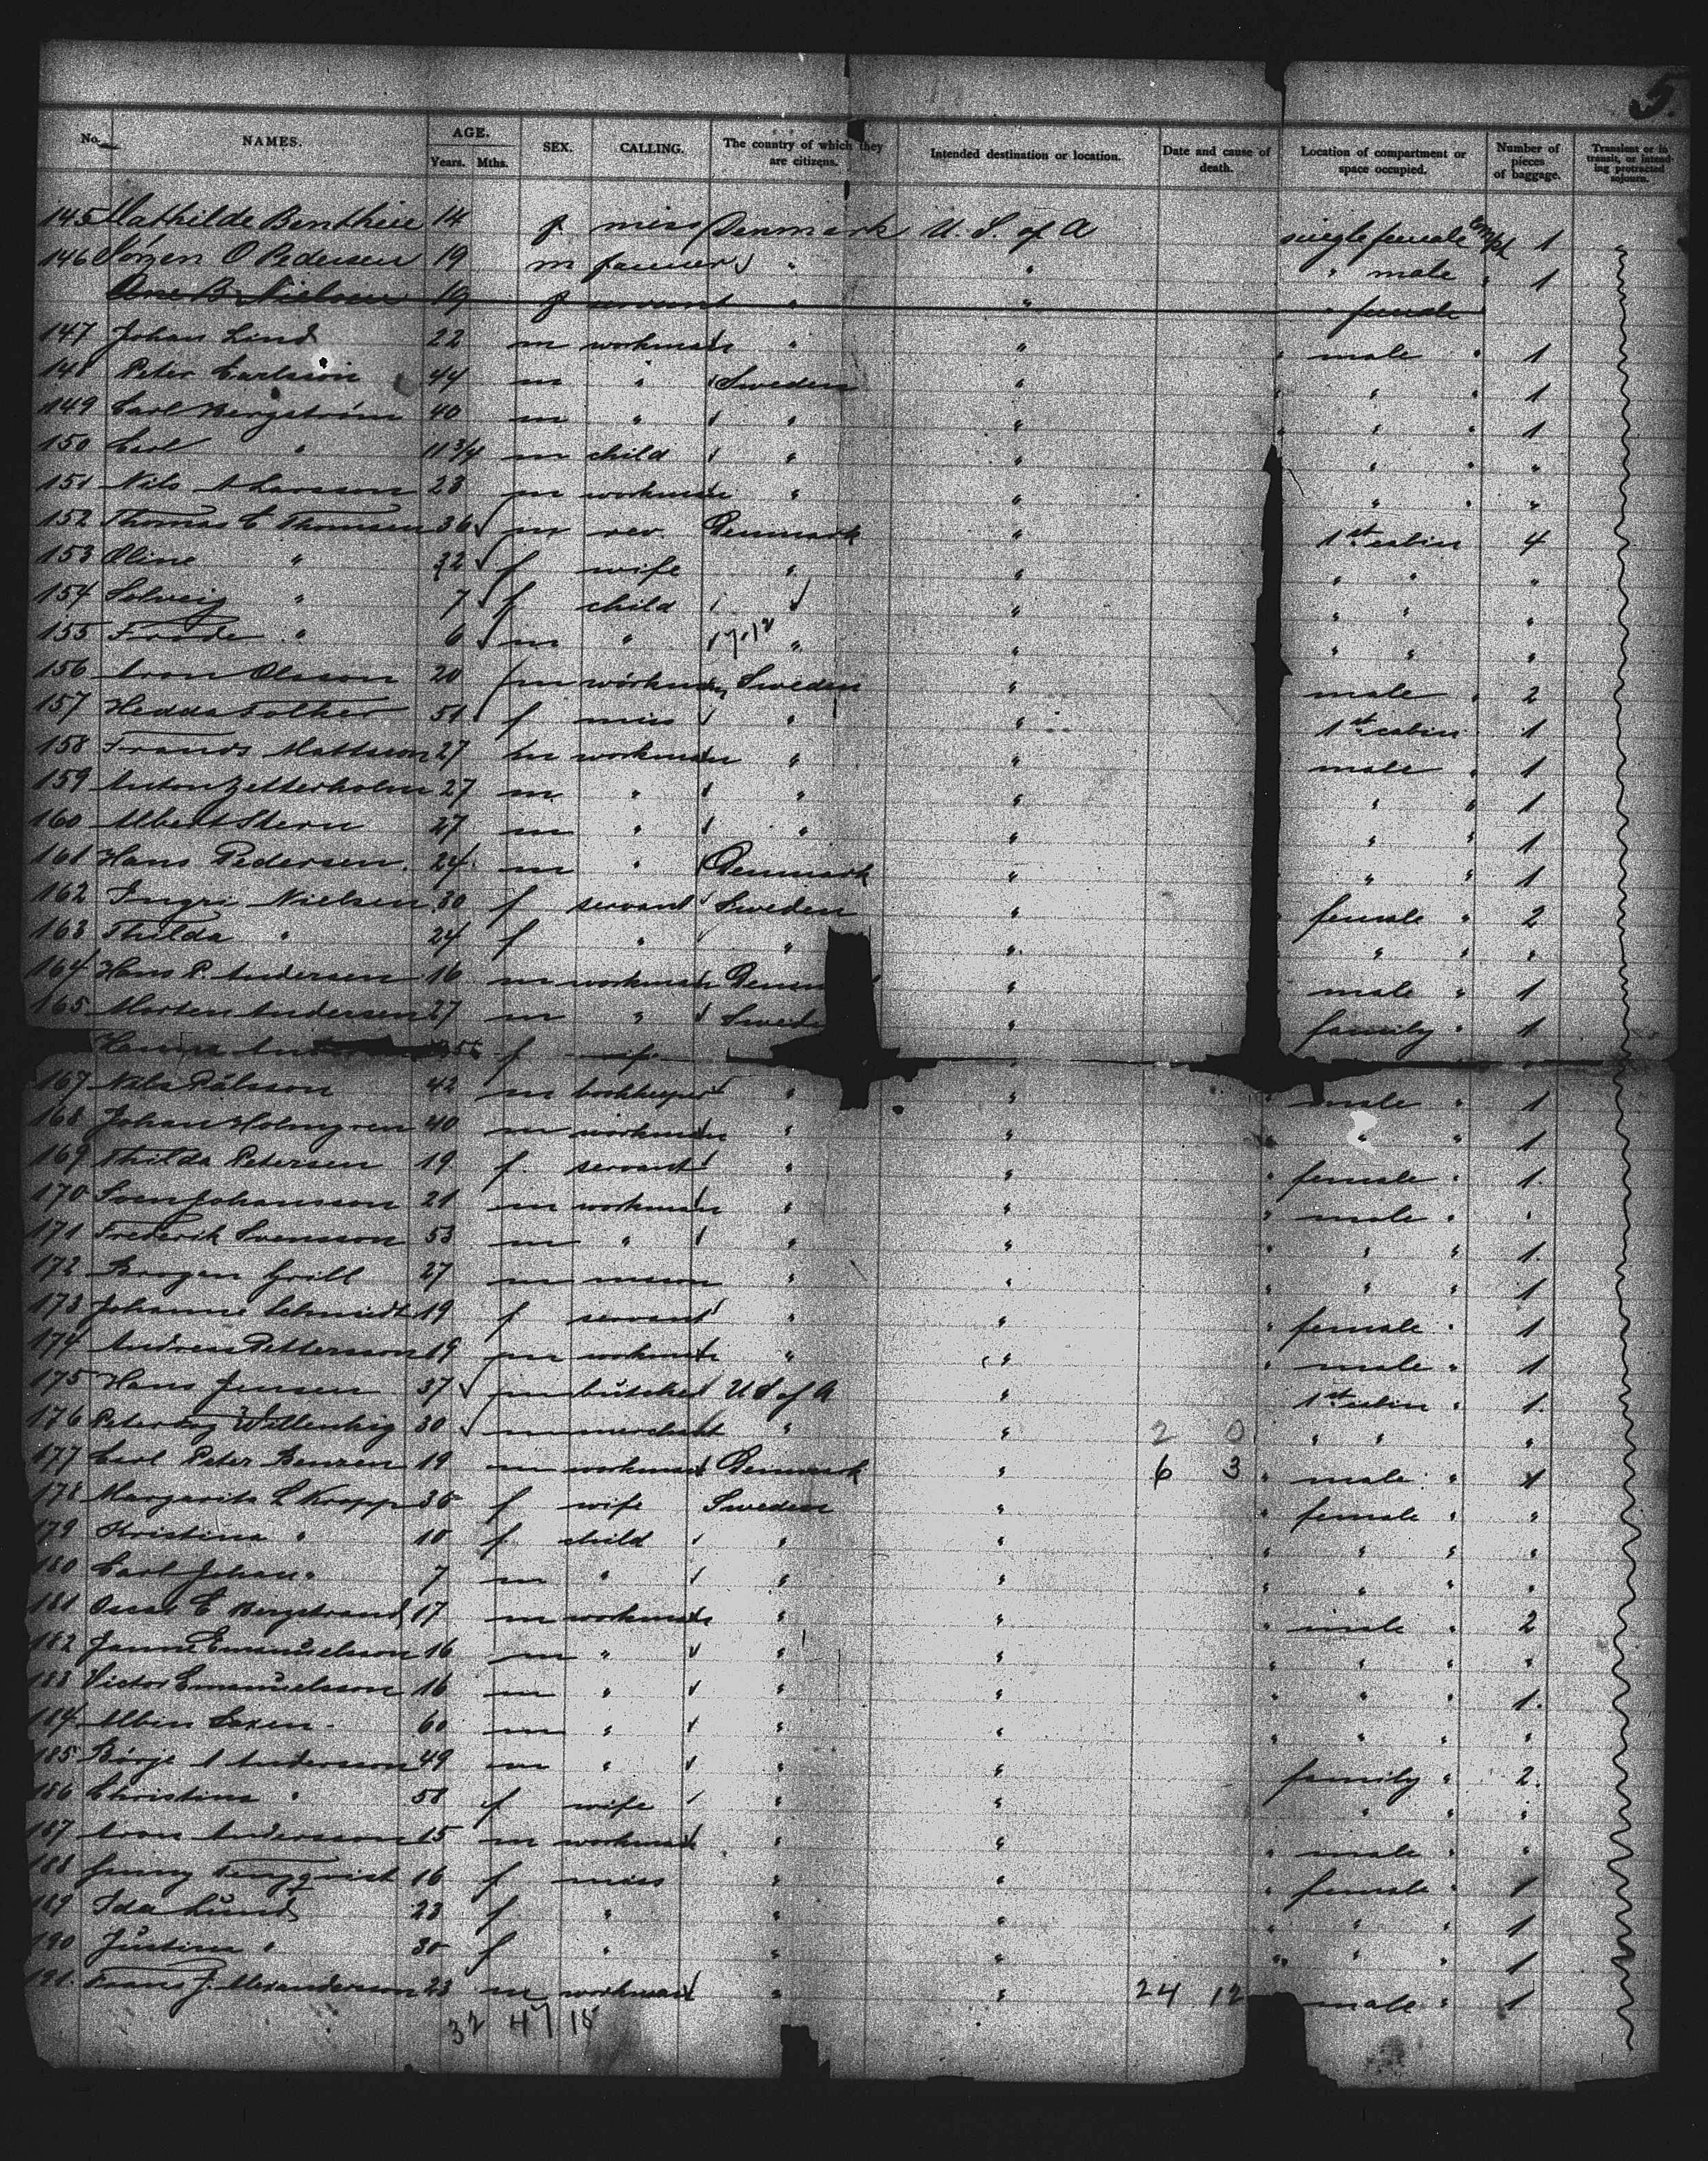 5.
No. NAMES. AGE. Years. Mths. SEX. CALLING. The country of which they are citizens. Intended destination or location. Date and cause of death. Location of compartment or space occupied. Number of pieces of baggage. Transient or in transit, or intending protracted sojourn.
145 Mathilde 14 f miss Denmark U. S. of A single female 1 "
146 Sörgen O Pedersen 19 m farmer " " " male " 1
Ane B Nielsen 19 f servant " " " female
147 Johan Lind 22 m workman " " " male " 1
148 Peter Carlsson 44 m " Sweden " " " " 1
149 Carl Bergström 40 m " " " " " " 1
150 Carl " 11 3/4 m child " " " " "
151 Nils A Larsson 28 m workman " " " " "
152 Thomas C Thomsen 36 m rev. Denmark " 1st cabin 4
153 Oline " 32 f wife " " " " "
154 Solveig " 7 f child " " " "
155 Frode " 6 m " " " " " "
156 Aron Olsson 20 m workman Sweden " male " 2
157 Hedda 51 f miss " " 1st cabin 1
158 Frands Mattsson 27 m workman " " male " 1
159 Anton Zetterholm 27 m " " " " " 1
160 Albert Stern 27 m " " " " " 1
161 Hans Pedersen 24 m " Denmark " " " 1
162 Ingri Nielsen 30 f servant Sweden " female " 2
163 Thilda " 24 f " " " " " "
164 Hans P. Andersen 16 m workman " male " 1
165 Morten Andersen 27 m " " family " 1
f wife
167 Nils Pålsson 42 m bookkeeper " " " male " 1
168 Johan Holmgren 40 m workman " " " " " 1
169 Thilda Petersen 19 f servant " " " female " 1.
170 Sven Johansson 21 m workman " " " male " "
171 Frederik Svensson 53 m " " " " " " 1.
172 Grill 27 m mason " " " " " 1
173 Johanne Schmidt 19 f servant " " " female " 1
174 Andreas Pettersson 19 m workman " " " male " 1
175 Hans Jensen 37 m butcher U S of A " 1st cabin " 1.
176 30 m merchant " " 2 0 " " "
177 Carl Peter 19 m workman Denmark " 6 3 " male " 1
178 Margarita L Kropp 35 f wife Sweden " " female " "
179 Kristina " 10 f child " " " " " "
180 Carl Johan " 7 m " " " " " " "
181 Oscar E Bergstrand 17 m workman " " " male " 2
182 Janne Emanuelsson 16 m " " " " " " "
183 Victor Emanuelsson 16 m " " " " " " 1.
184 Albin 60 m " " " " " " "
185 Börje A Andersson 49 m " " " family " 2.
186 Christina " 58 f wife " " " " "
187 Aron Andersson 15 m workman " " " male " "
188 Jenny 16 f miss " " " female " 1
189 Ida Lund 23 f " " " " " " 1
190 Justina " 30 f " " " " " " 1
191. Frans J. Alexanderson 23 m workman " " 24 12 male " 1
32 47 18